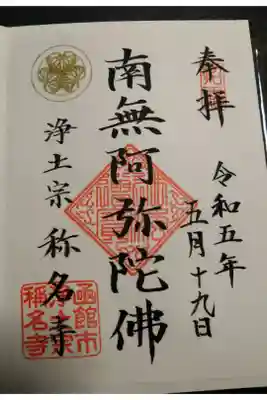 奉拝
令和五年
五月十九日
南無阿弥陀佛
浄土宗 称名寺
函館市
稱名寺